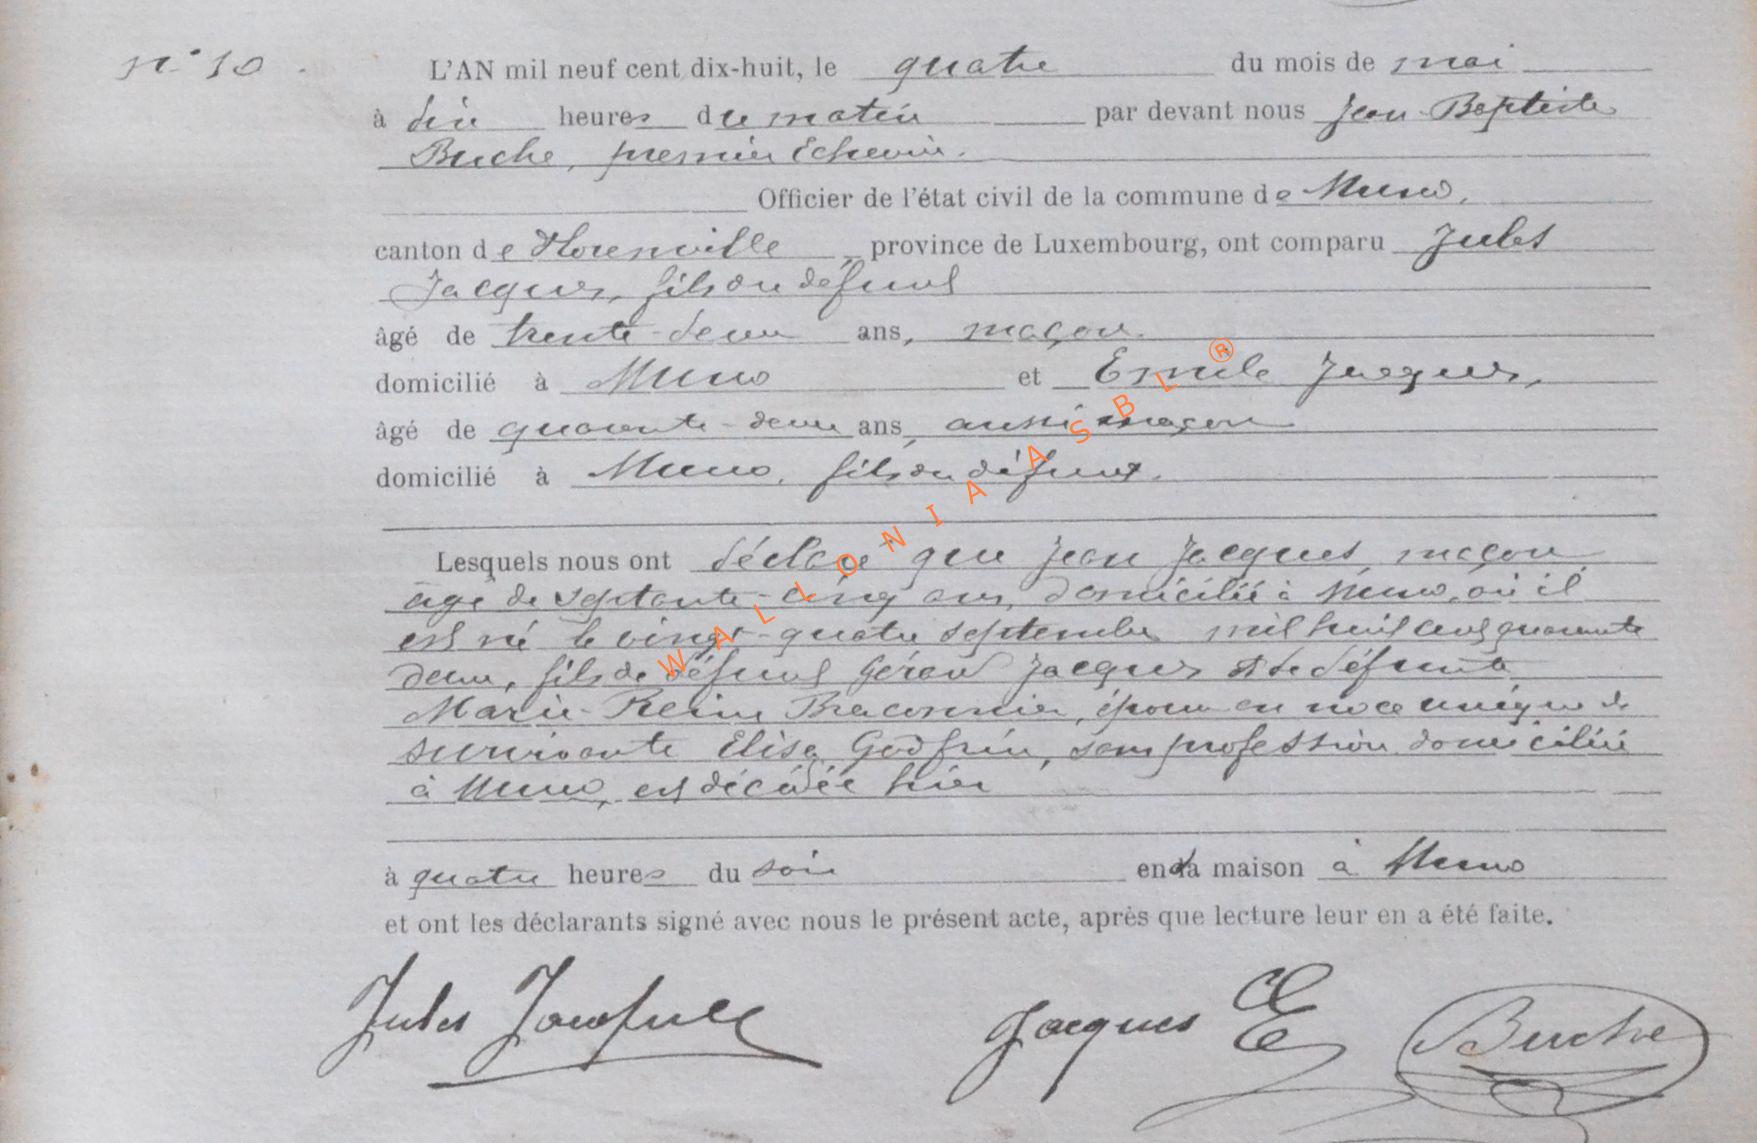 n° 10
L'AN mil neuf cent dix-huit, le quatre du mois de mai
à dix heures du matin par devant nous Jean-Baptiste
Buche, premier Echevin.
Officier de l'état civil de la commune de Muno,
canton de Florenville, province de Luxembourg, ont comparu Jules
Jacques, fils du défunt
âgé de trente-deux ans, maçon.
domicilié à Muno et Emile Jacques,
âgé de quarante-deux ans, aussi maçon
domicilié à Muno, fils du défunt.
Lesquels nous ont déclaré que Jean Jacques, maçon
âgé de septante-cinq ans, domicilié à Muno, où il
est né le vingt-quatre septembre mil huit cent quarante
deux, fils de défunt Gérard Jacques et de défunte
Marie-Reine Braconnier, époux en noce unique de
survivante Elisa Godfrin, sans profession domiciliée
à Muno, est décédée hier
à quatre heures du soir en sa maison à Muno
et ont les déclarants signé avec nous le présent acte, après que lecture leur en a été faite.
Jules Jacques Jacques E Buche
WALLONIA ASBL ®